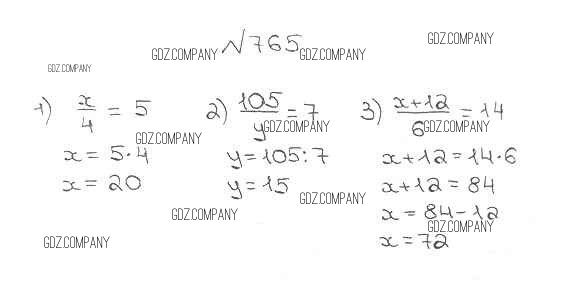 №765
1) x/4 = 5
x = 5·4
x = 20
2) 105/y = 7
y = 105:7
y = 15
3) x+12/6 = 14
x+12 = 14·6
x+12 = 84
x = 84-12
x = 72
GDZ.COMPANY
GDZ.COMPANY
GDZ.COMPANY
GDZ.COMPANY
GDZ.COMPANY
GDZ.COMPANY
GDZ.COMPANY
GDZ.COMPANY
GDZ.COMPANY
GDZ.COMPANY
GDZ.COMPANY